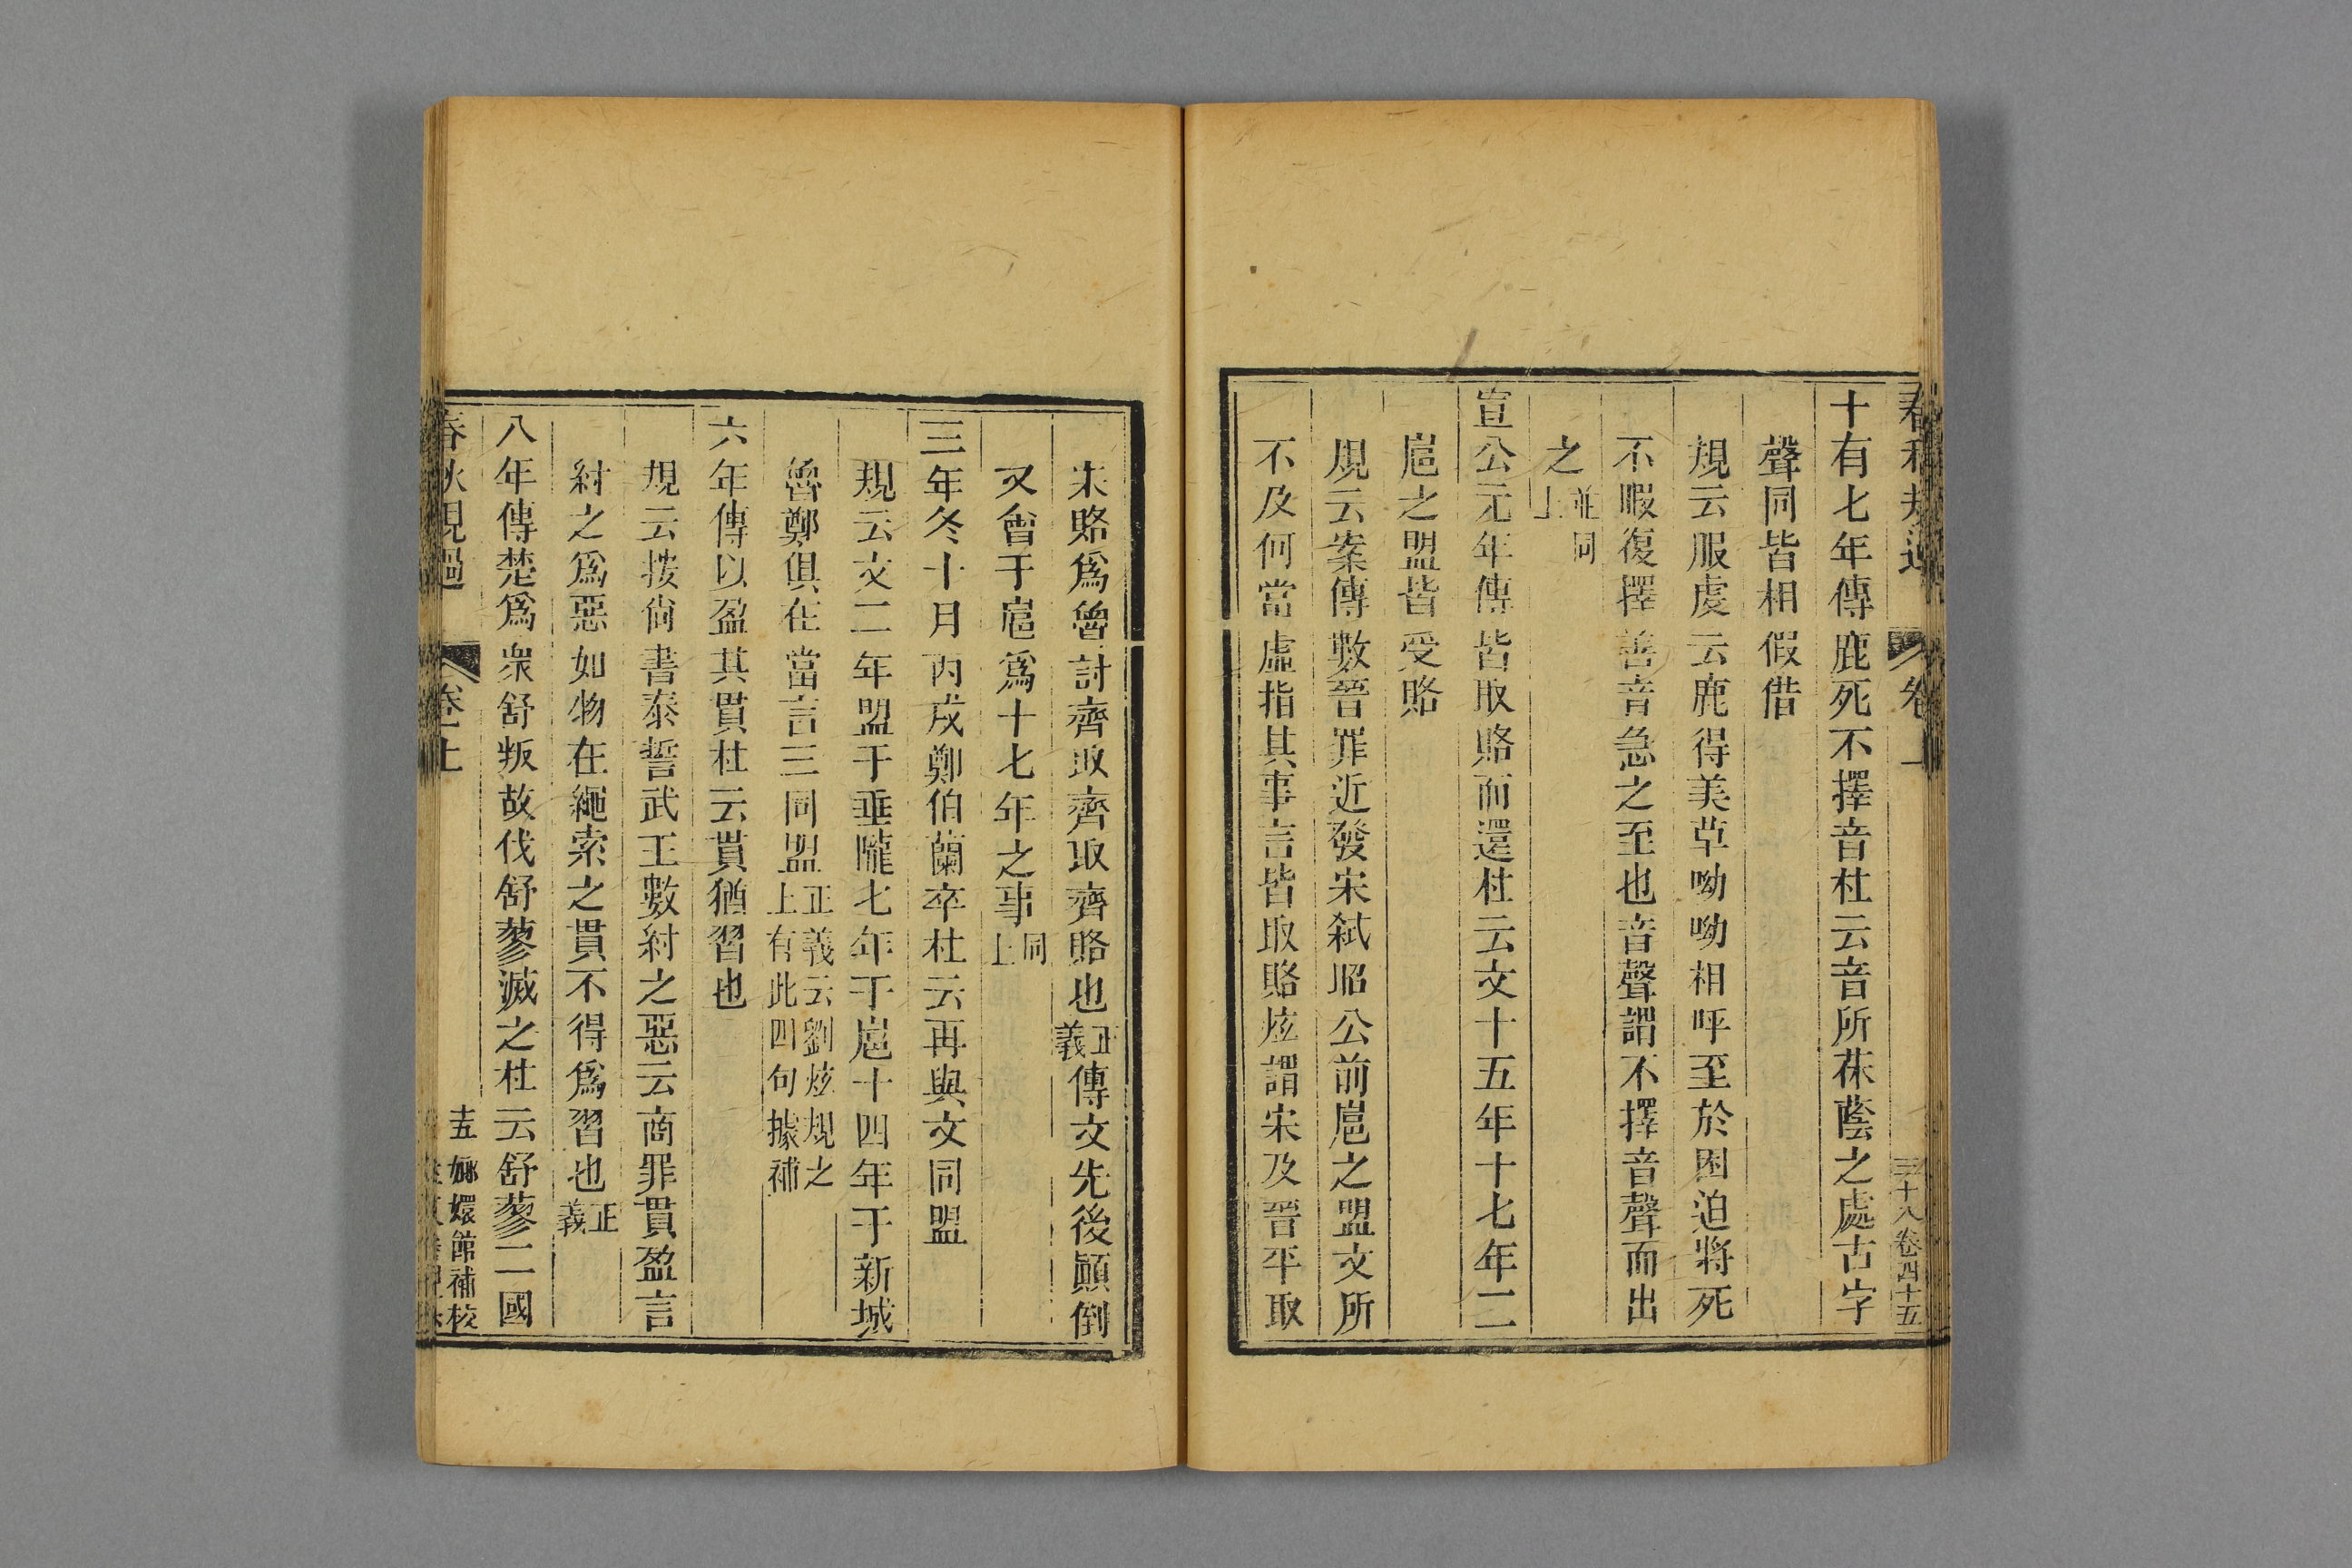 十有七年傳鹿死不擇音杜云音所茠蔭之處古字
聲同皆相假借
規云服虔云鹿得美草呦呦相呼至於困迫將死
不暇復擇善音急之至也音聲謂不擇音聲而出
之並同上
宣公元年傳皆取賂而還杜云文十五年十七年二
扈之盟皆受賂
規云案傳數晉罪近發宋弒昭公前扈之盟文所
不及何當虛指其事言皆取賂炫謂宋及晉平取
宋賂爲魯討齊取齊取齊賂也正義傳文先後顚倒
又會于扈爲十七年之事同上
三年冬十月丙戌鄭伯蘭卒杜云再與文同盟
規云文二年盟于垂隴七年于扈十四年于新城
魯鄭俱在當言三同盟正義云劉炫規之上有此四句據補
六年傳以盈其貫杜云貫猶習也
規云按尙書泰誓武王數紂之惡云商罪貫盈言
紂之爲惡如物在繩索之貫不得爲習也正義
八年傳楚爲衆舒叛故伐舒蓼滅之杜云舒蓼二國
春秋規過 卷上 十五 嫏嬛館補校